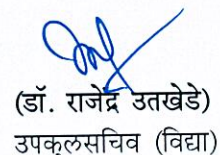 (डॉ. राजेंद्र उतखेडे)
उपकुलसचिव (विद्या)